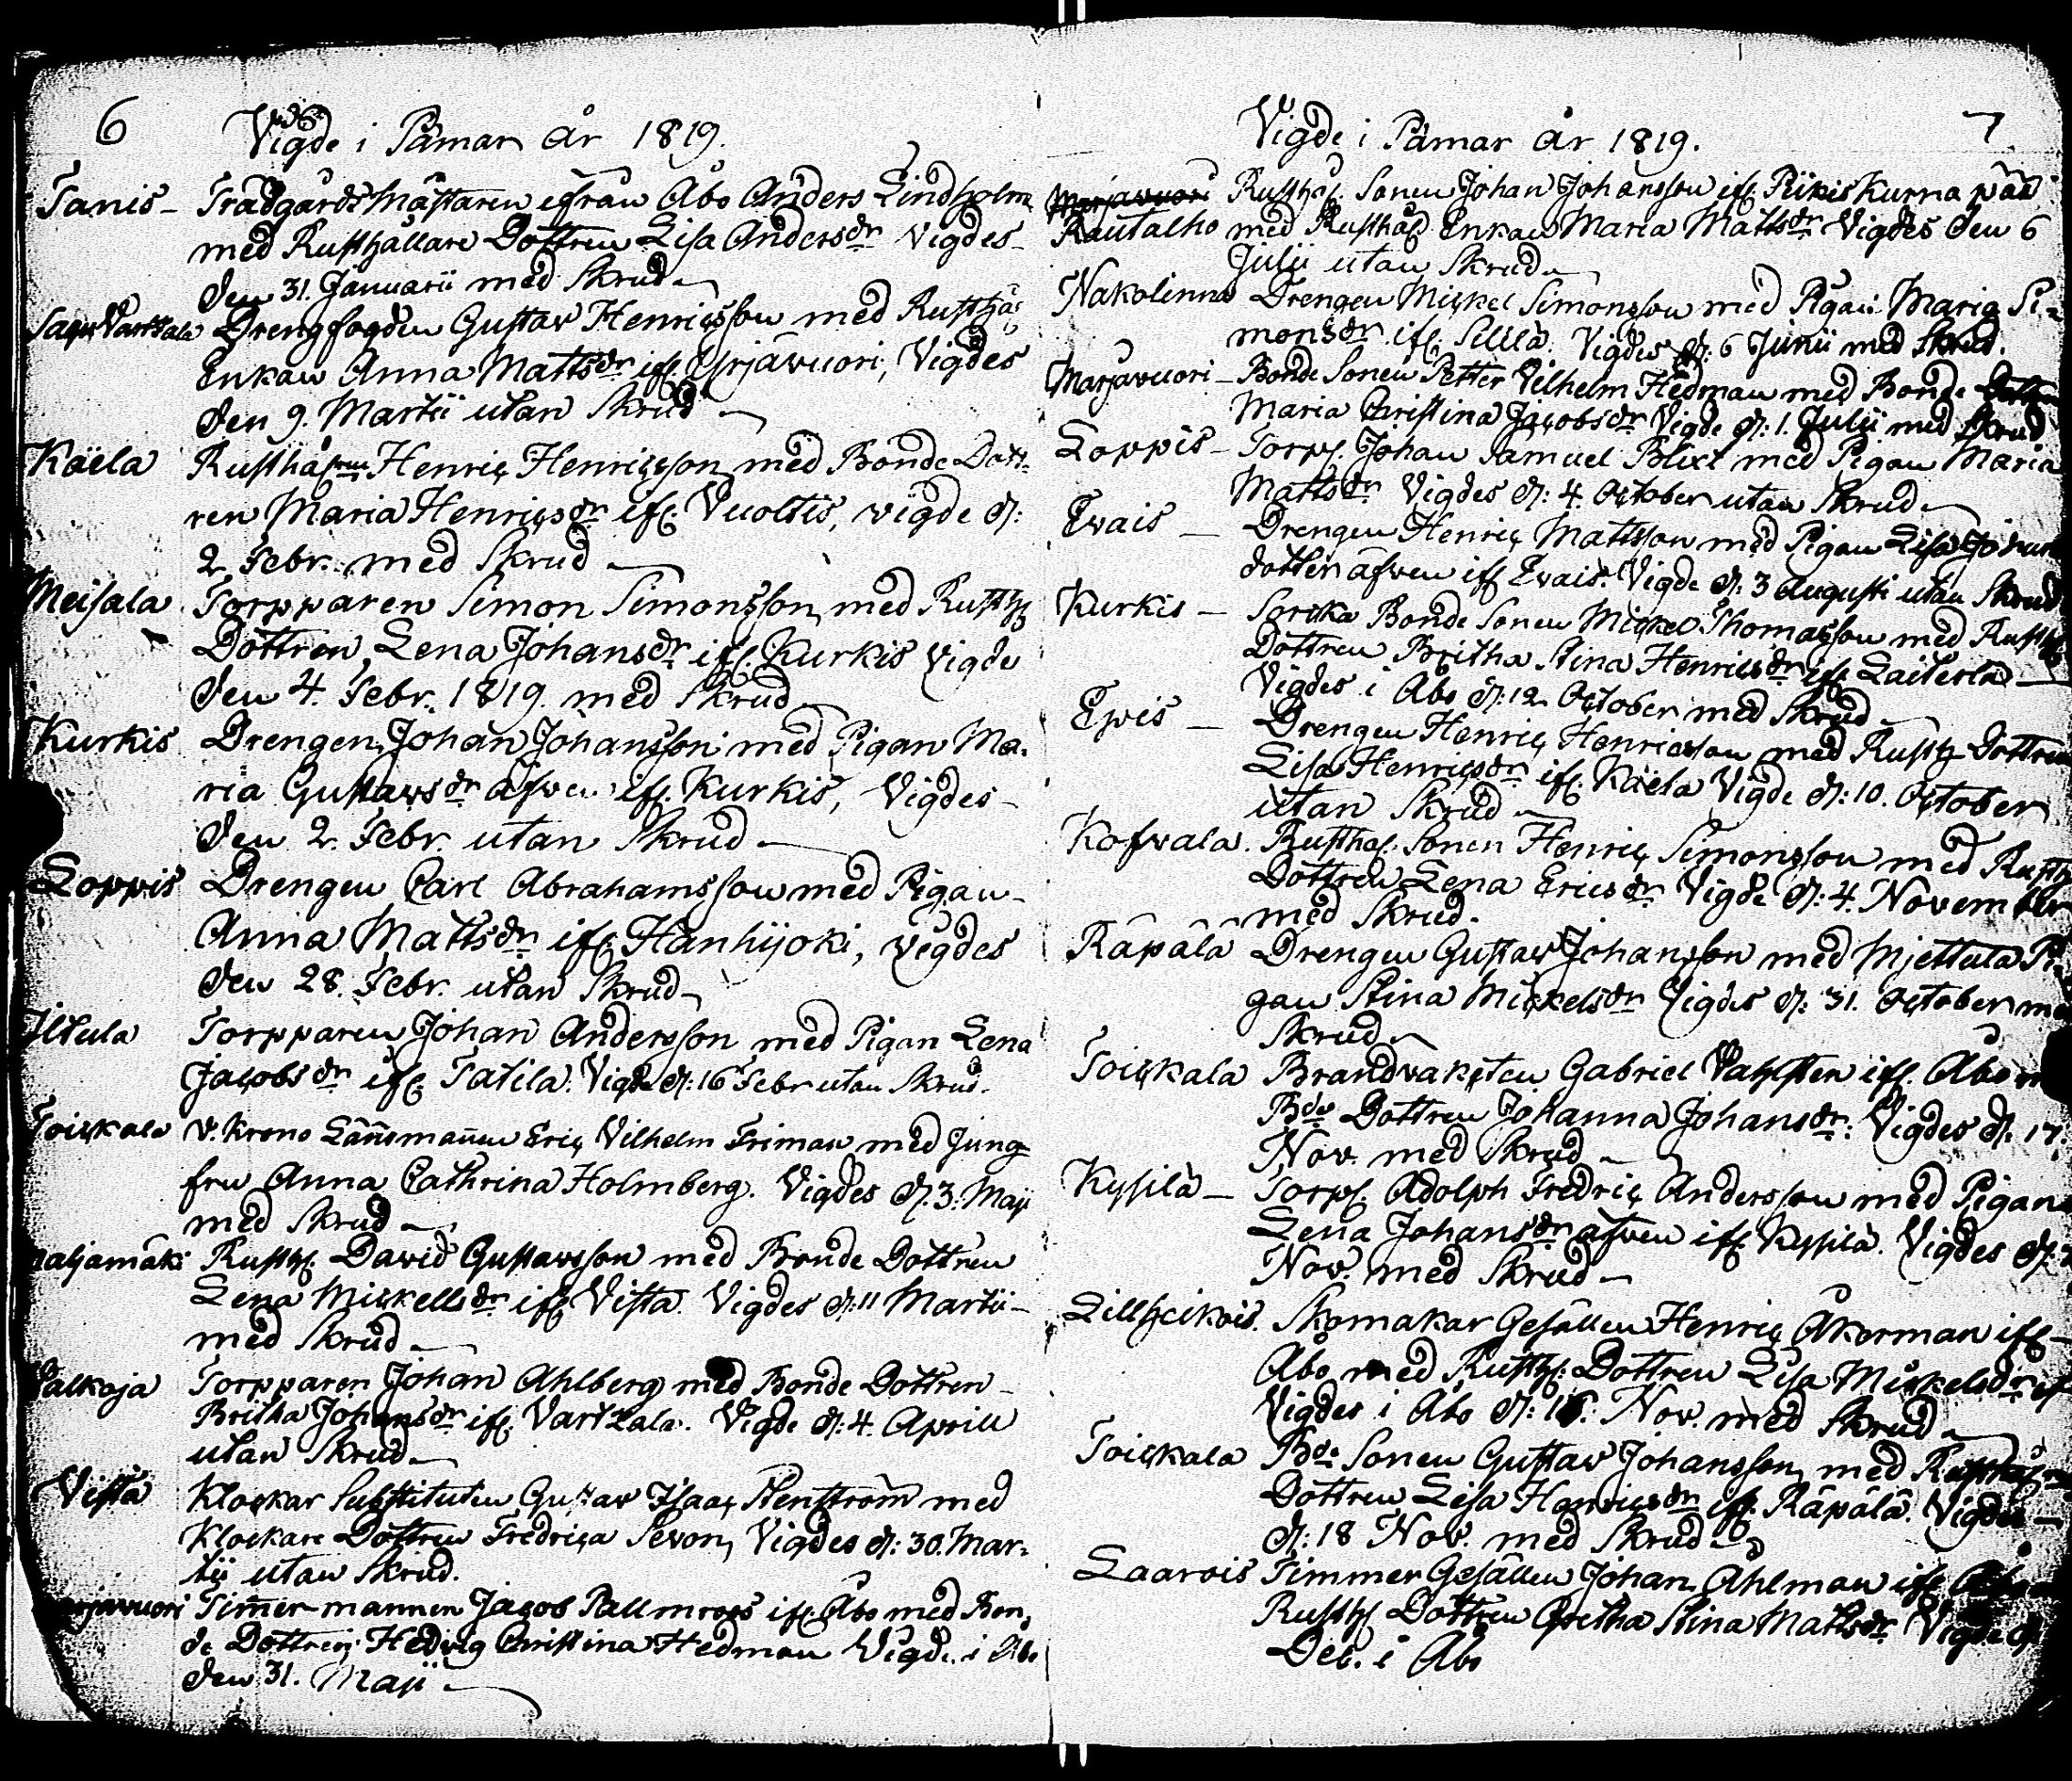 6
Vigde i Pämar år 1819.
Tanis - Trädgårds Mästaren ifrån Åbo Anders Lindholm
med Rusthållare Dottren Lisa Andersdr Vigdes
den 31. Januarii med Skrud
Vartsala Drengfogden Gustav Henricsson med Rusth:
Enkan Anna Mattsdr ifr. Yrjävuori, Vigdes
den 9. Martii utan Skrud
Käela Rusthåll. Henric Henricsson med Bonde Dott-
ren Maria Henricsdr ifr. Vuoltis, vigde d:
2 Febr. med Skrud
Meisala Torpparen Simon Simonsson med Rusth.
Dottren Lena Johansdr ifr. Kurkis Vigde
den 4. Febr. 1819. med Skrud
Kurkis Drengen Johan Johansson med Pigan Ma-
ria Gustavsdr äfven ifr. Kurkis, Vigdes
den 2. Febr. utan Skrud
Loppis Drengen Carl Abrahamsson med Pigan
Anna Mattsdr ifr. Hanhijoki, Vigdes
den 28. Febr. utan Skrud
Iltula Torpparen Johan Andersson med Pigan Lena
Jacobsdr ifr. Tatila. Vigde d: 16 Febr utan Skrud.
Toickala V. Krono Länsmannen Eric Vilhelm Friman med Jung-
fru Anna Cathrina Holmberg. Vigdes d. 3. Maji
med Skrud
Rusth. David Gustavsson med Bonde Dottren
Lena Mickellsdr ifr. Vista. Vigdes d: 11 Martii
med Skrud
Valkoja Torpparen Johan Ahlberg med Bonde Dottren
Britha Johansdr ifr. Vartsala. Vigde d: 4. Aprill
utan Skrud
Vista Klockar Substituten Gustav Isaac Stenström med
Klockare Dottren Fredrica Sevon, Vigdes d: 30. Mar-
tii utan Skrud.
Timmermannen Jacob Pallmroos ifr. Åbo med Bon-
de Dottren Hedvig Christina Hedman Vigde i Åbo
den 31. Maji
7
Vigde i Pämar år 1819.
Marjavuori Rusth. Sonen Johan Johansson ifr. Piikis Kurnapää
Rautalho med Rusthåll. Enkan Maria Mattsdr Vigdes den 6
Julii utan Skrud
Nakolinna Drengen Mickel Simonsson med Pigan Maria Si-
monsdr ifr. Sillilä. Vigdes d: 6 Junii med Skrud.
Marjavuori - Bonde Sonen Petter Vilhelm Hedman med Bonde Dottren
Maria Christina Jacobsdr Vigde d: 1. Julii med Skrud
Loppis - Torp. Johan Samuel Blixt med Pigan Maria
Mattsdr Vigdes d: 4. October utan Skrud
Evais - Drengen Henric Mattsson med Pigan Lisa
dotter äfven ifr Evais. Vigde d. 3 Augusti utan Skrud
Kurkis - Bonde Sonen Mickel Thomasson med Rusth.
Dottren Britha Stina Henricsdr ifr. Laiterla
Vigdes i Åbo d: 12 October med Skrud
Drengen Henric Henricsson med Rusth. Dottren
Lisa Henricsdr ifr. Käela Vigde d: 10. October
utan Skrud
Kofvala. Rusth. Sonen Henric Simonsson med Rusth.
Dottren Lena Ericsdr Vigde d: 4. November
med Skrud.
Räpälä Drengen Gustav Johansson med Mjettula Pi-
gan Stina Mickelsdr Vigdes d: 31. October med
Skrud
Toickala Brandvackten Gabriel ifr. Åbo
Bde Dottren Johanna Johansdr. Vigdes d. 17.
Nov. med Skrud
Kysilä - Torp. Adolph Fredric Andersson med Pigan
Lena Johansdr äfven ifr Kysilä. Vigdes d:
Nov. med Skrud
Lillheikois. Skomakar Gesällen Henric Åkerman ifr
Åbo med Rusth. Dottren Lisa Mickelsdr
Vigdes i Åbo d: 16. Nov. med Skrud
Toickala Bde Sonen Gustav Johansson med
Dottren Lisa Henricsdr ifr. Räpälä. Vigdes
d: 18 Nov. med Skrud
Laarois Timmer Gesällen Johan Åhlman ifr Åbo
Rusth Dottren Gretha Stina Mattsdr Vigde d:
Dec. i Åbo